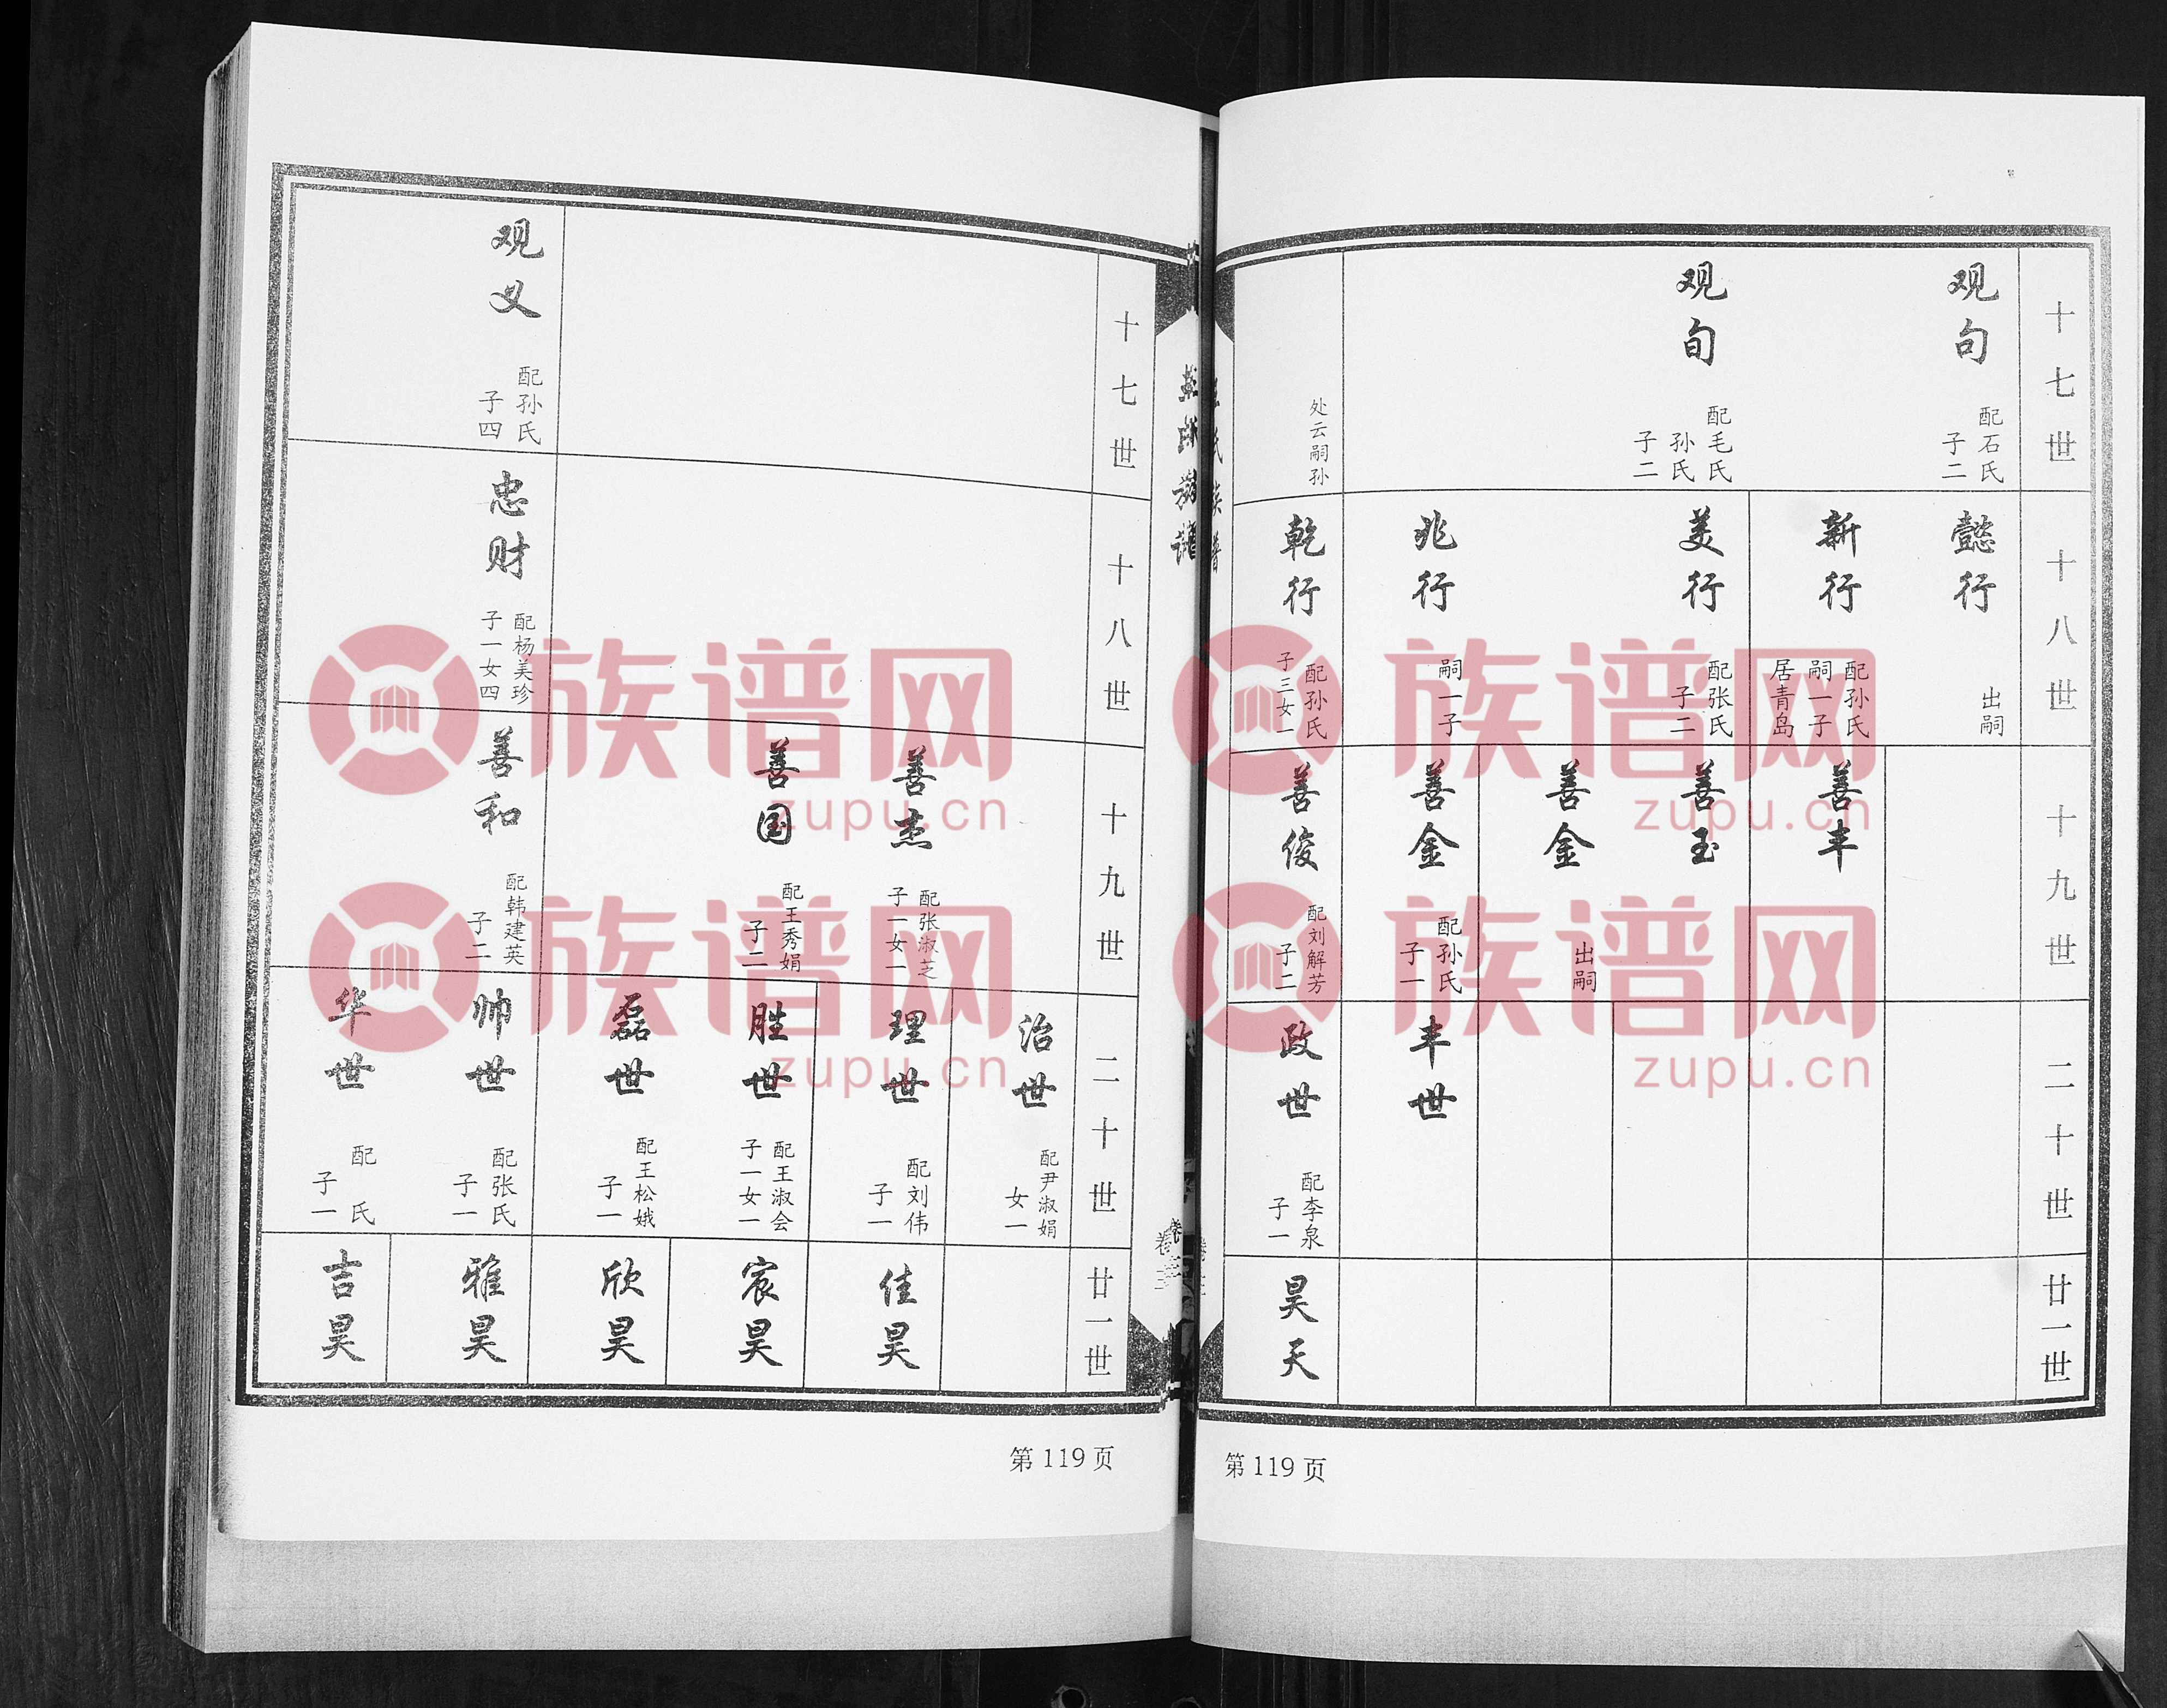 十七世
观句
配石氏
子二
观旬
配毛氏
孙氏
子二
处云嗣孙
十八世
懿行
出嗣
新行
配孙氏
嗣一子
居青岛
美行
配张氏
子二
兆行
嗣一子
乾行
配孙氏
子三女一
十九世
善丰
善玉
善金
出嗣
善金
配孙氏
子一
善俊
配刘解芳
子二
二十世
丰世
政世
配李泉
子一
廿一世
昊天
第119页
十七世
观义
配孙氏
子四
十八世
忠财
配杨美珍
子一女四
十九世
善杰
配张淑芝
子一女一
善国
配王秀娟
子二
善和
配韩建英
子二
二十世
治世
配尹淑娟
女一
理世
配刘伟
子一
胜世
配王淑会
子一女一
磊世
配王松娥
子一
帅世
配张氏
子一
华世
配 氏
子一
廿一世
佳昊
宸昊
欣昊
雅昊
吉昊
第119页
族谱网
zupu.cn
族谱网
zupu.cn
族谱网
zupu.cn
族谱网
zupu.cn